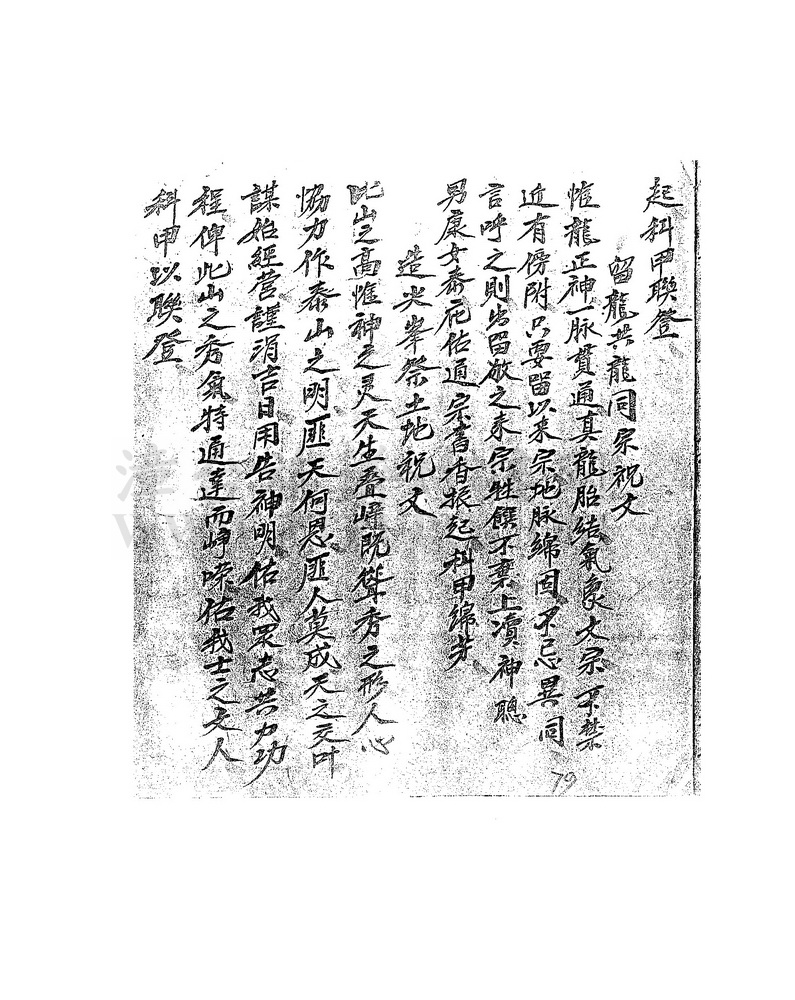 起科甲聯登
留龍共龍同宗祝文
惟龍正神一脉貫通真龍胎結氣象大宗不禁
近有傍附只要留以来宗地脉綿固不忌異同
言呼之則出留敬之来宗牲饌不棄上凟神聰
男康女泰庇佑通宗書香振起科甲綿芳
造尖峯祭土地祝文
此山之高惟神之灵天生叠嶂既聳秀之形人心
恊力作泰山之明匪天何恩匪人莫成天之交叶
謀始經营謹涓吉日用告神明佑我眾志共力功
程俾此山之秀氣特通達而崢嶸佑我士之文人
科甲以聯登
79